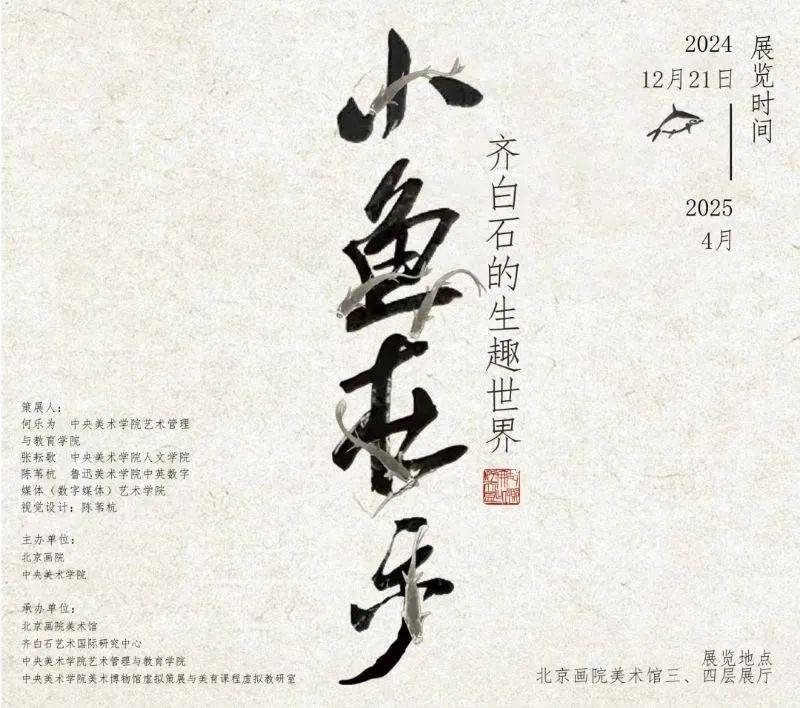 小鱼在乎
齐白石的生趣世界
展览时间
2024
12月21日
2025
4月
策展人：
何乐为 中央美术学院艺术管理
与教育学院
张耘歌 中央美术学院人文学院
陈苇杭 鲁迅美术学院中英数字
媒体（数字媒体）艺术学院
视觉设计：陈苇杭
主办单位：
北京画院
中央美术学院
承办单位：
北京画院美术馆
齐白石艺术国际研究中心
中央美术学院艺术管理与教育学院
中央美术学院美术博物馆虚拟策展与美育课程虚拟教研室
展览地点
北京画院美术馆三、四层展厅